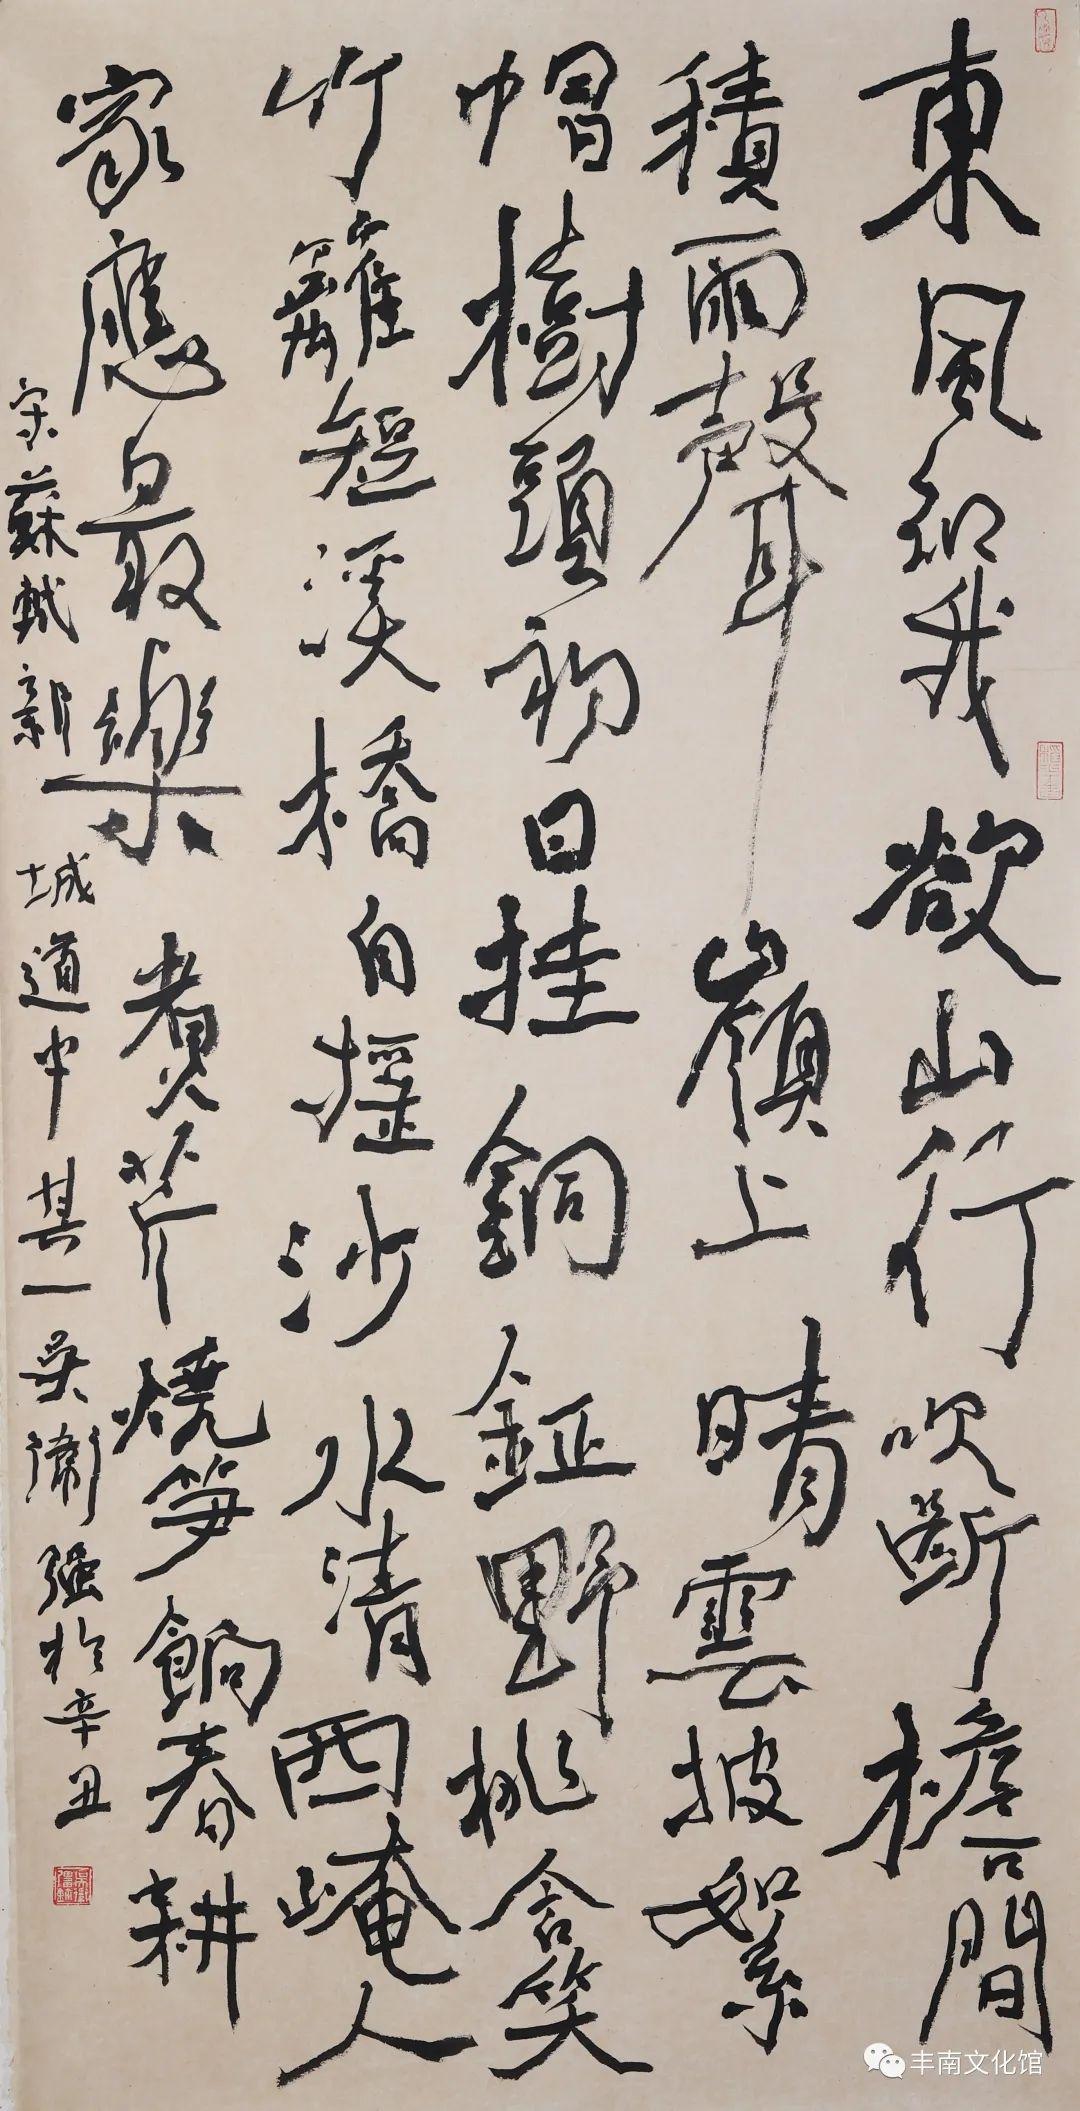 東風知我欲山行吹斷檐間
積雨聲嶺上晴雲披絮
帽樹頭初日挂銅鉦野桃含笑
竹籬短溪橋自摇沙水清西崦人
家應最樂煮芹燒笋餉春耕
宋蘇軾新城道中其一吴衛强於辛丑
丰南文化馆